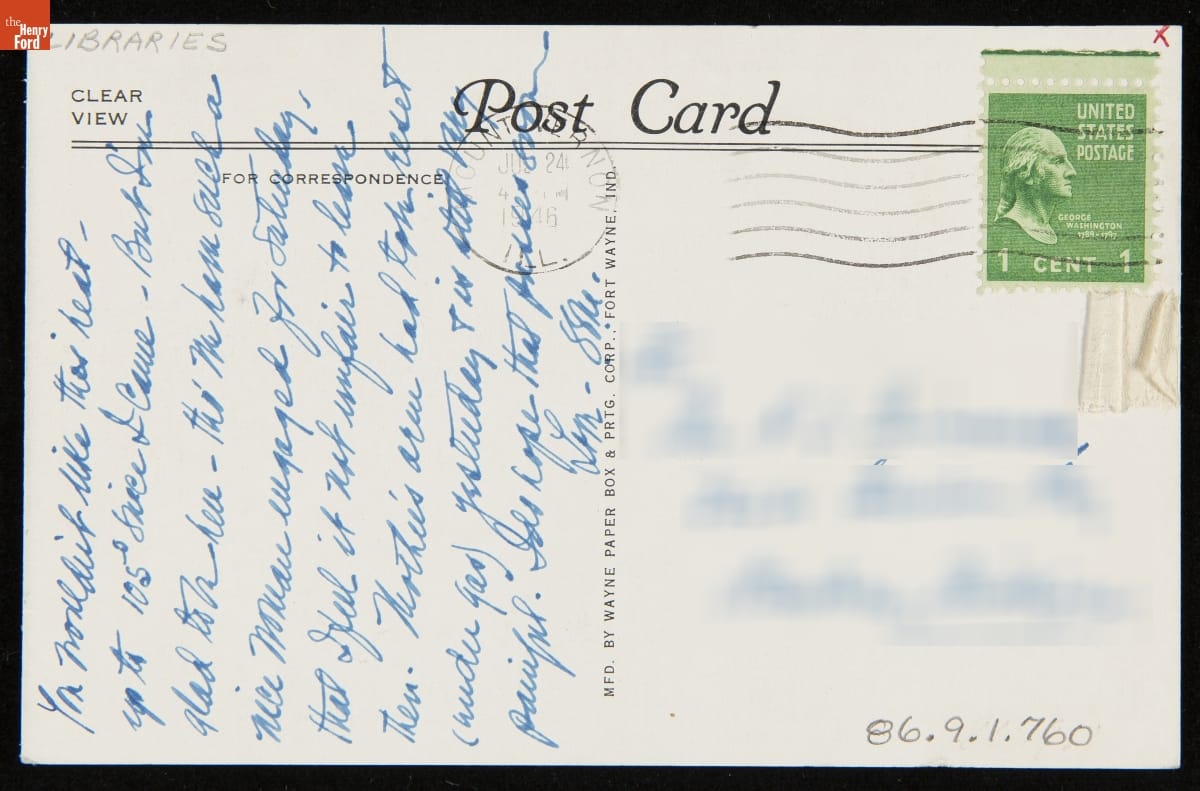 the
Henry
Ford
LIBRARIES
X
CLEAR
VIEW
Post Card
FOR CORRESPONDENCE
MOUNT VERNON
24
1946
ILL.
UNITED
STATES
POSTAGE
GEORGE
WASHINGTON
1789-1797
1 CENT 1
You wouldn't like this heat -
up to 105° since I came - But I'm
glad to be here - tho' M has such a
nice woman engaged for Saturday,
that I feel it not unfair to leave
then. Mother's arm had to be reset
(under gas) yesterday & is still very
painful. Does hope that passes soon
MFD. BY WAYNE PAPER BOX & PRTG. CORP., FORT WAYNE, IND.
86.9.1.760